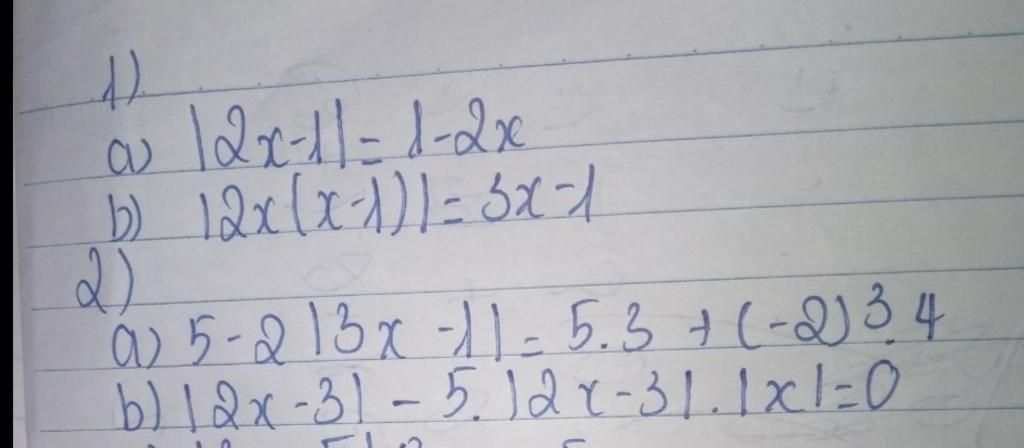 1)
a) |2x-1| = 1-2x
b) |2x(x-1)| = 3x-1
2)
a) 5-2|3x-1| = 5.3 + (-2)³.4
b) |2x-3| - 5.|2x-3|.|x|=0